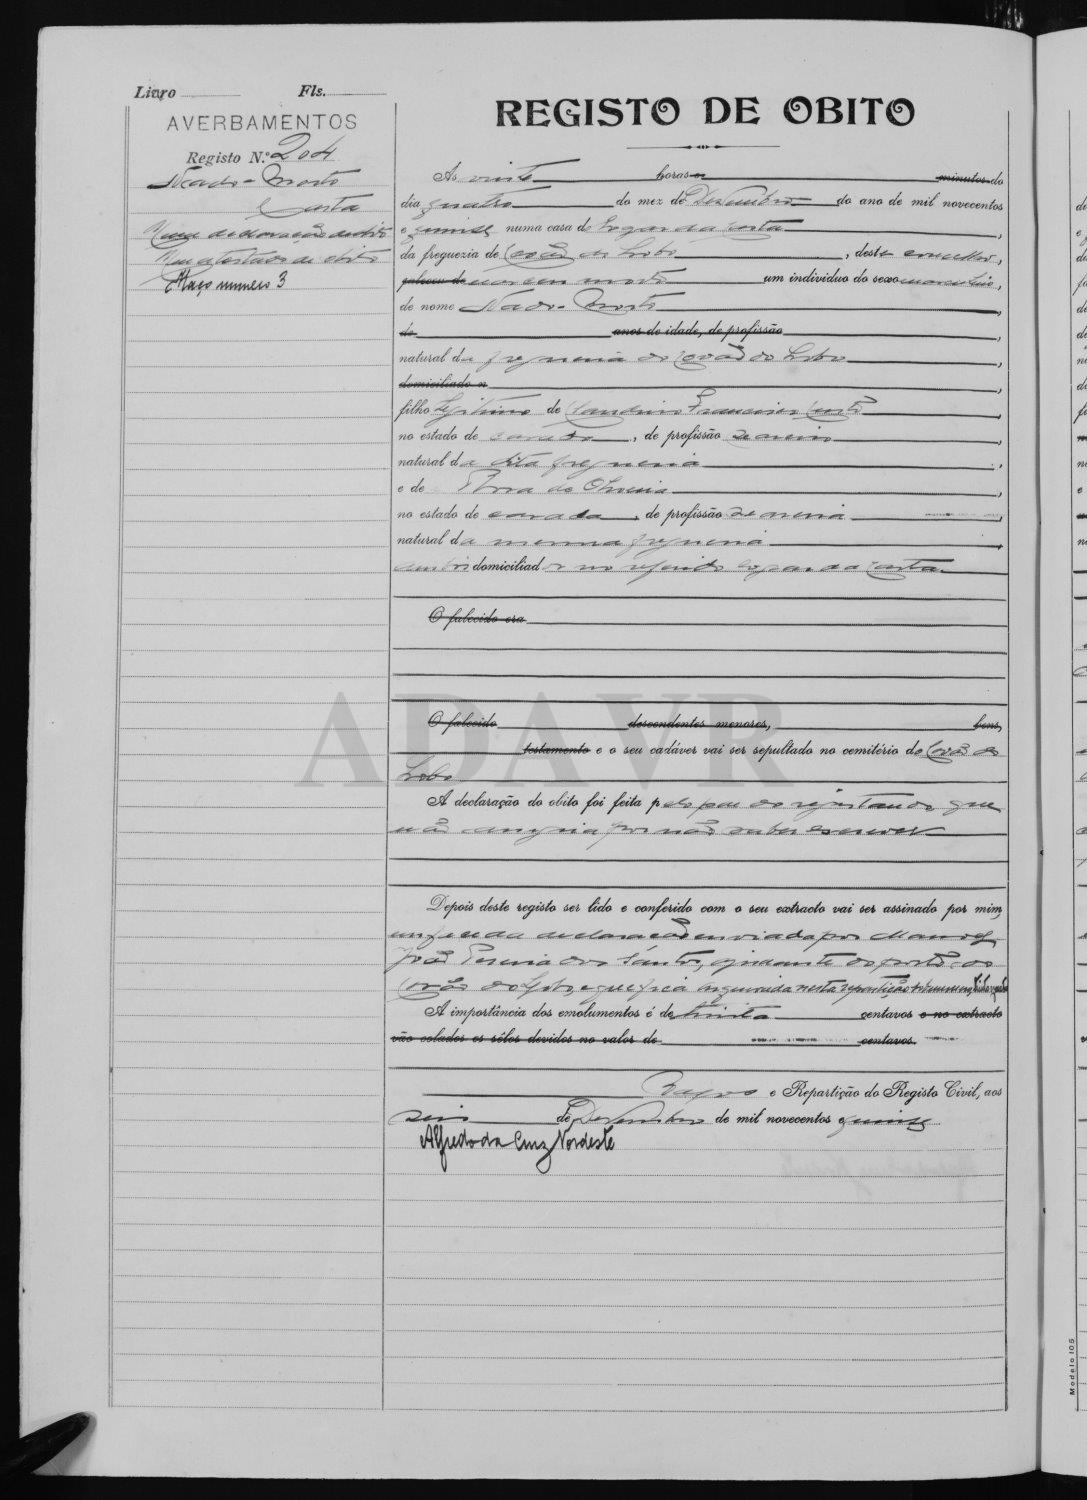 Livro Fls.
AVERBAMENTOS
Registo N.º 204
Nado-Morto
Costa
Uma declaração de obito
Um atestado de obito
Maço numero 3
REGISTO DE OBITO
Ás vinte horas e minutos do
dia quatro do mez de Dezembro do ano de mil novecentos
e quinze numa casa do Logar da Costa,
da freguezia de Covão do Lobo, deste concelho,
faleceu de nasceu morto um individuo do sexo masculino,
de nome Nado-Morto,
de anos de idade, de profissão,
natural da freguezia do Covão do Lobo,
domiciliado n,
filho legitimo de Francisco,
no estado de casado, de profissão,
natural da dita freguezia,
e de Rosa de Oliveira,
no estado de casada, de profissão,
natural da mesma freguezia,
ambos domiciliados no referido logar da Costa
O falecido era
ADAVR
O falecido descendentes menores, bens,
testamento e o seu cadáver vai ser sepultado no cemitério do Covão do
Lobo
A declaração do obito foi feita pelo pae do registando que
não assigna por não saber escrever
Depois deste registo ser lido e conferido com o seu extracto vai ser assinado por mim,
declaração enviada por Manoel
João Pereira dos Santos, ajudante do posto do
Covão do Lobo, e que fica arquivada nesta repartição
A importância dos emolumentos é de trinta centavos e no extracto
vão colados os sêlos devidos no valor de centavos.
Vagos e Repartição do Registo Civil, aos
seis de Dezembro de mil novecentos e quinze
Alfredo da Cruz Nordeste
Modelo 105